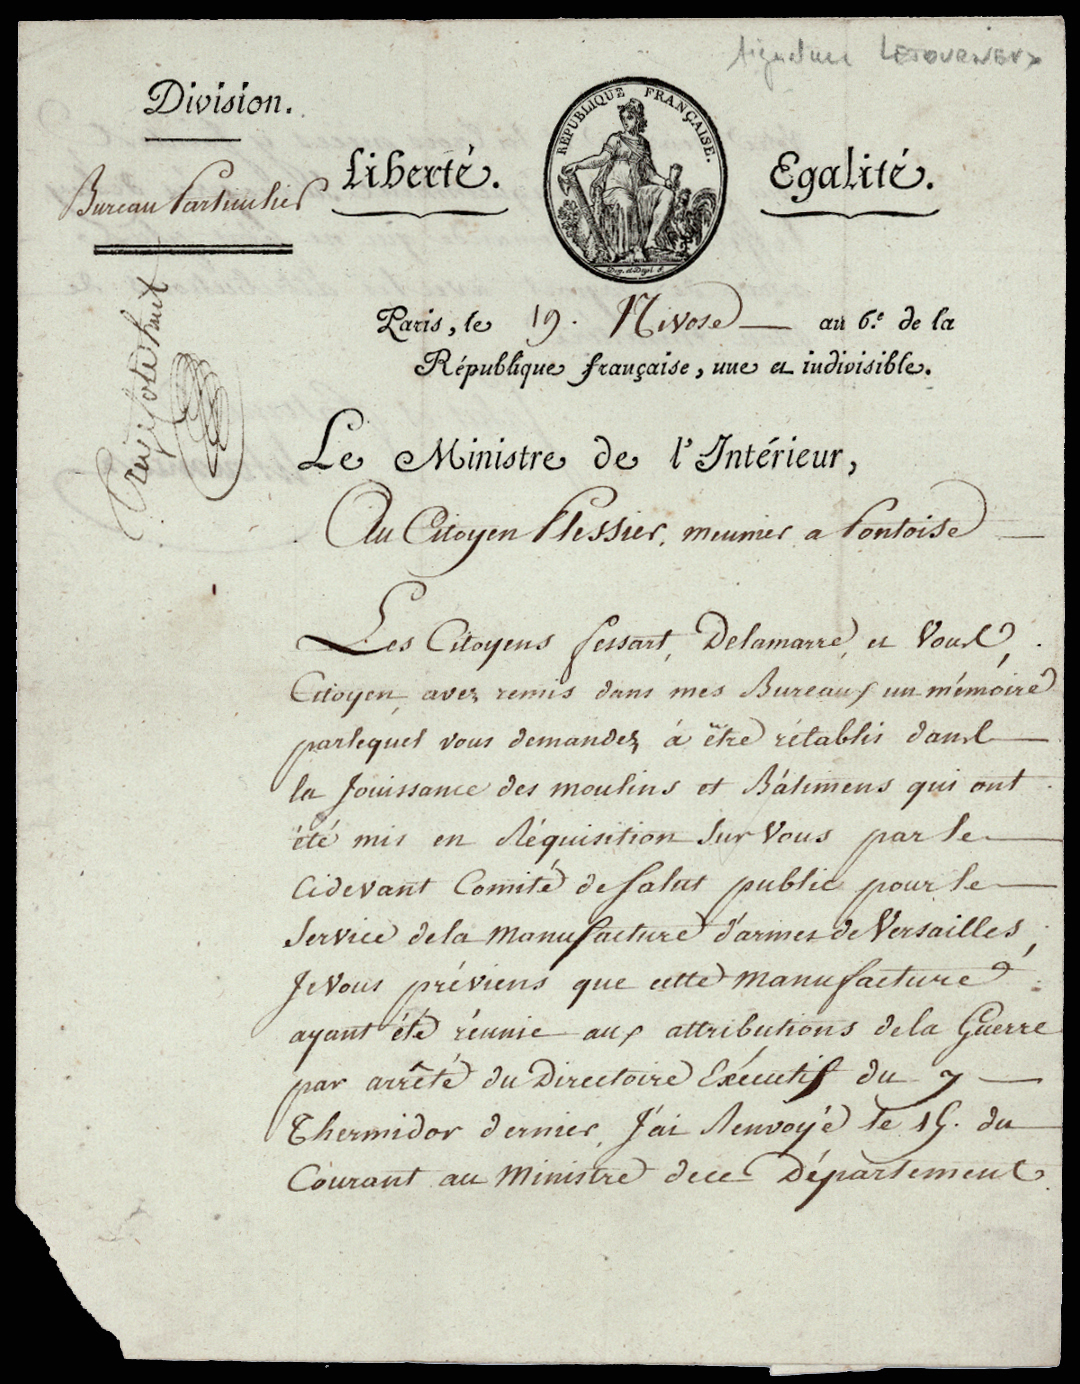 Signature LETOURNEUX
Division.
Bureau Particulier
Liberté.
RÉPUBLIQUE FRANÇAISE.
Egalité.
Paris, le 19. Nivose — an 6.e de la
République française, une et indivisible.
Le Ministre de l'Intérieur,
Au Citoyen Plessier, meunier a Pontoise —
Les Citoyens fessart, Delamarre, et Vous,
Citoyen, avez remis dans mes Bureaux un mémoire
parlequel vous demandez à être rétablis dans —
la Jouissance des moulins et Bâtimens qui ont
été mis en Réquisition Sur Vous par le —
Cidevant Comité de Salut public pour le —
Service dela manufacture d'armes de Versailles,
Je Vous préviens que cette manufacture
ayant été réunie aux attributions dela Guerre
par arrêté du Directoire Exécutif du 7 —
Thermidor dernier, J'ai Renvoyé le 15. du
Courant au Ministre de ce Département